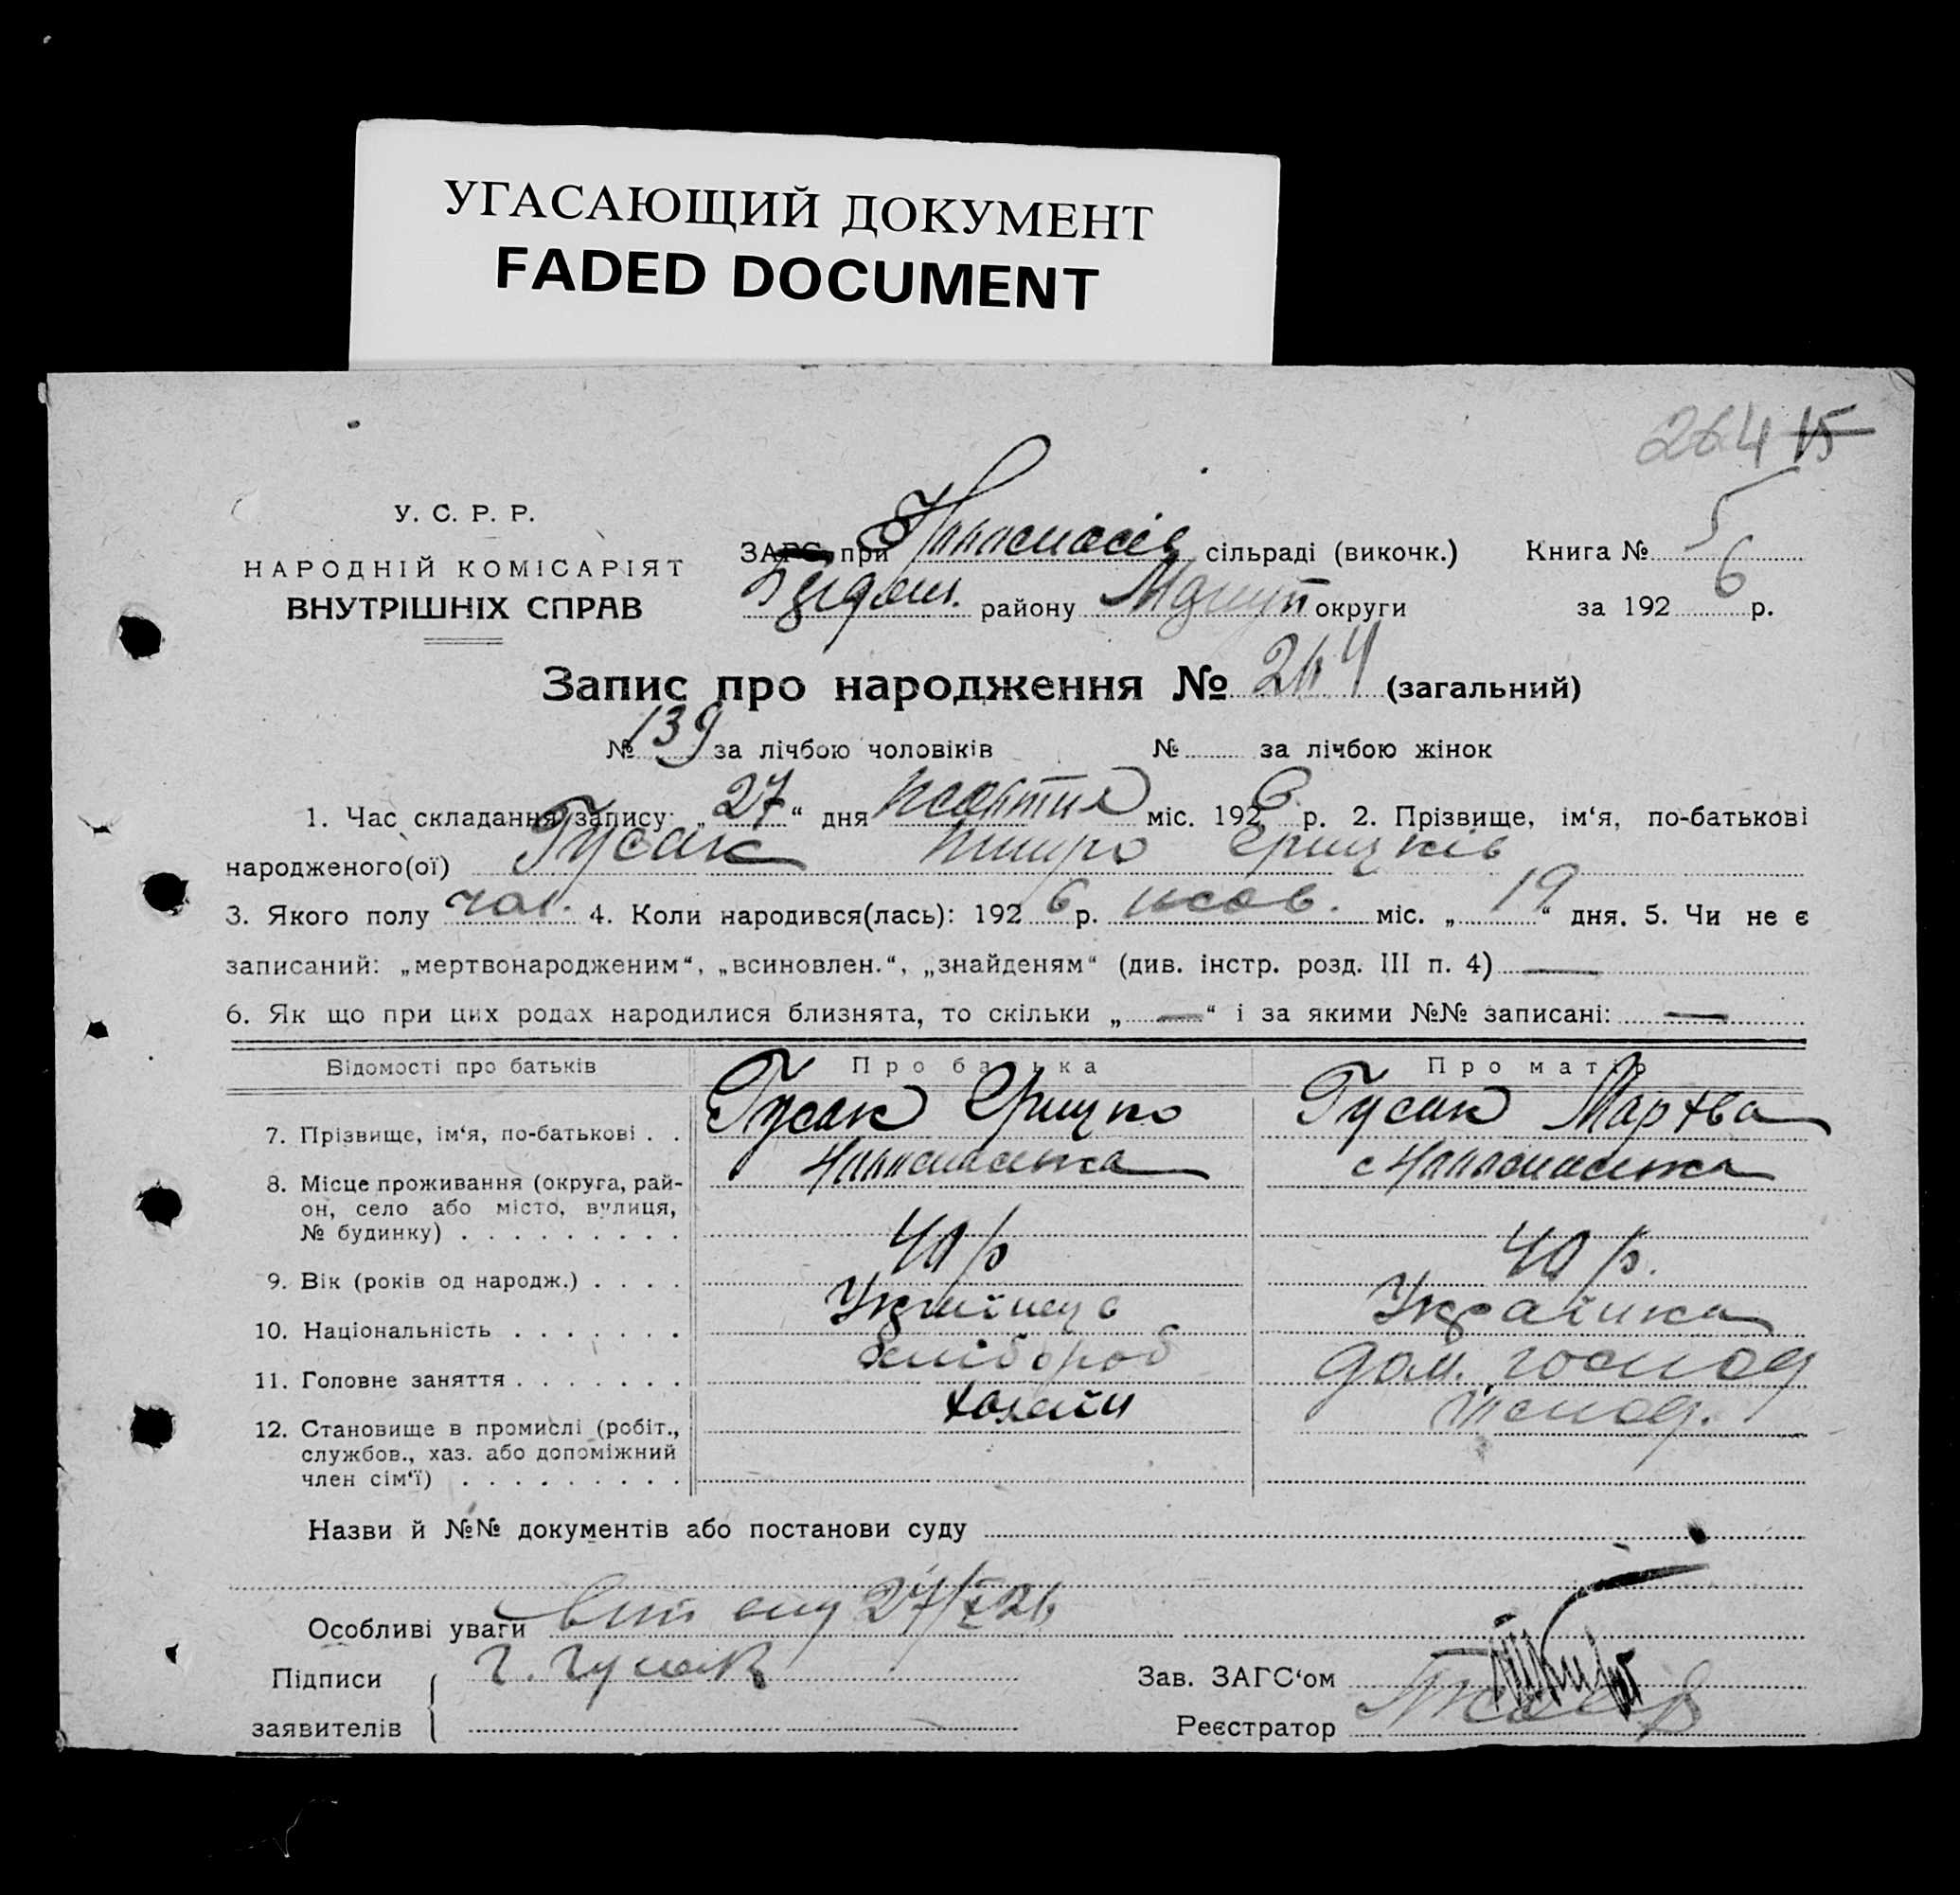 УГАСАЮЩИЙ ДОКУМЕНТ
FADED DOCUMENT
264 15
У. С. Р. Р.
НАРОДНІЙ КОМІСАРІЯТ
ВНУТРІШНІХ СПРАВ
ЗАГС при сільраді (викочк.)
району округи
Книга № 5
за 192 6 р.
Запис про народження № 264 (загальний)
№ 139 за лічбою чоловіків № за лічбою жінок
1. Час складання запису: „ 27 “ дня жовтня міс. 192 6 р. 2. Прізвище, ім‘я, по-батькові
народженого(ої) Гусак Грицків
3. Якого полу чол. 4. Коли народився(лась): 192 6 р. жовт. міс. „ 19 “ дня. 5. Чи не є
записаний: „мертвонародженим“, „всиновлен.“, „знайденям“ (див. інстр. розд. III п. 4) —
6. Як що при цих родах народилися близнята, то скільки „ — “ і за якими №№ записані: —
Відомості про батьків Про батька Про матір
7. Прізвище, ім‘я, по-батькові . . Гусак Грицко Гусак Мархва
8. Місце проживання (округа, рай-
он, село або місто, вулиця,
№ будинку) . . . . . . . . .
9. Вік (років од народж.) . . . . 40 р 40 р.
10. Національність . . . . . . . Українець Українка
11. Головне заняття . . . . . . . хлібороб дом. господ
12. Становище в промислі (робіт.,
службов., хаз. або допоміжний
член сім‘ї) . . . . . . . . .
хазяїн
Назви й №№ документів або постанови суду
Особливі уваги 27/X 26
Підписи
заявителів
Г. Гусак
Зав. ЗАГС‘ом
Реєстратор